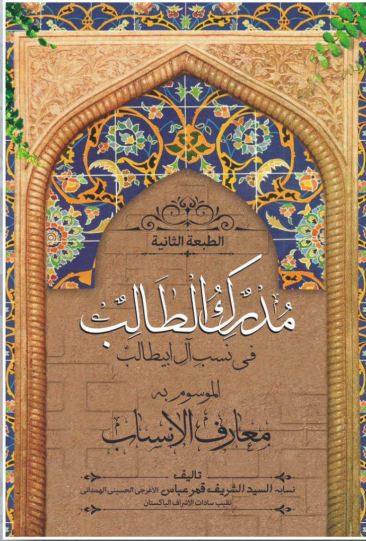 الطبعة الثانية
مُدرَكُ الطَالِبْ
فی نسب آل ابیطالب
الموسوم به
معارف الانساب
تالیف
نسابہ السید الشریف قمر عباس الاعرجی الحسینی الهمدانی
نقیب سادات الاشراف الباکستان